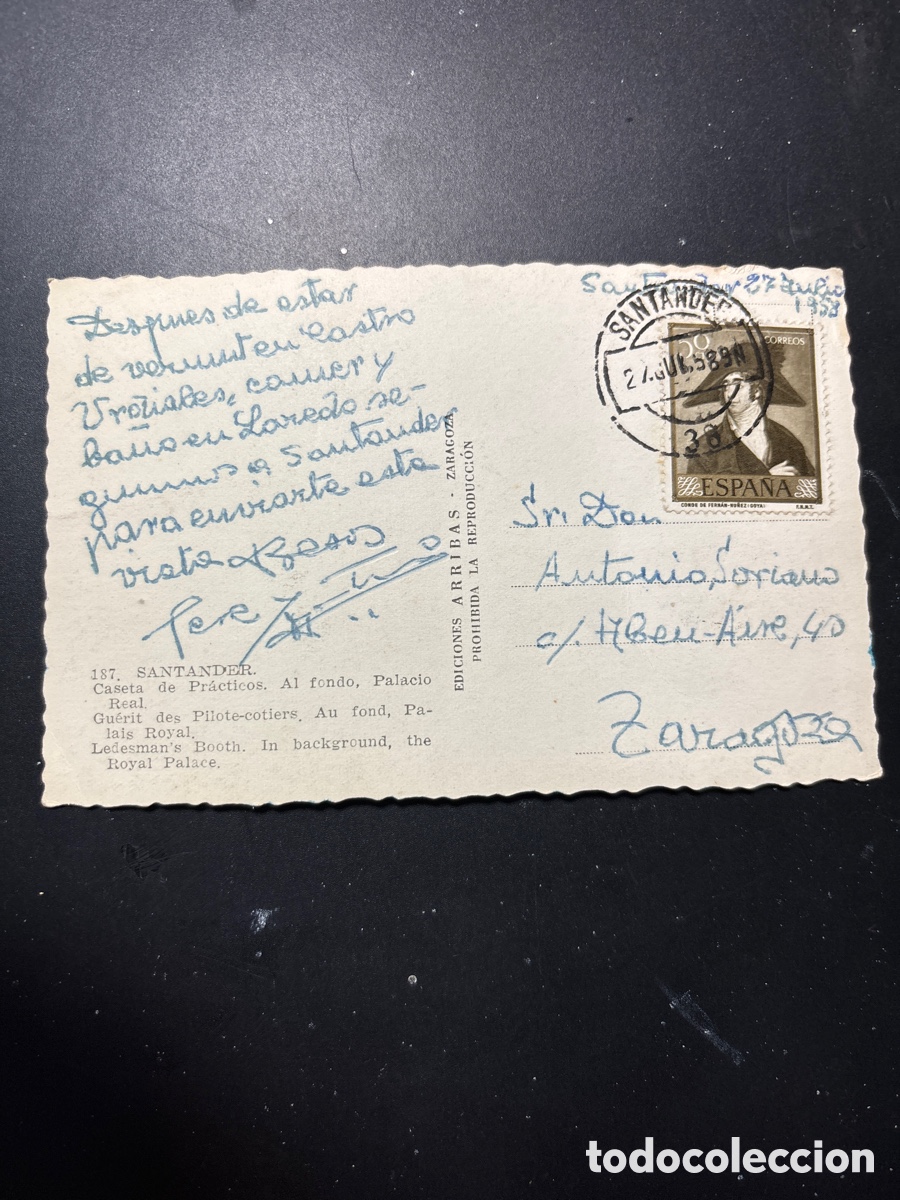 Santander 27 Julio
1958
Despues de estar
de vermut en Castro
Urdiales, comer y
baño en Laredo se-
guimos a Santander
para enviarte esta
vista Besos
187. SANTANDER.
Caseta de Prácticos. Al fondo, Palacio
Real.
Guérit des Pilote-cotiers. Au fond, Pa-
lais Royal.
Ledesman's Booth. In background, the
Royal Palace.
EDICIONES ARRIBAS - ZARAGOZA
PROHIBIDA LA REPRODUCCIÓN
SANTANDER
27.JUL.58
38
CORREOS
ESPAÑA
CONDE DE FERNÁN-NUÑEZ (GOYA)
F.N.M.T.
Sr. Don
Antonio Soriano
c/. Aben-Aire, 40
Zaragoza
todocoleccion